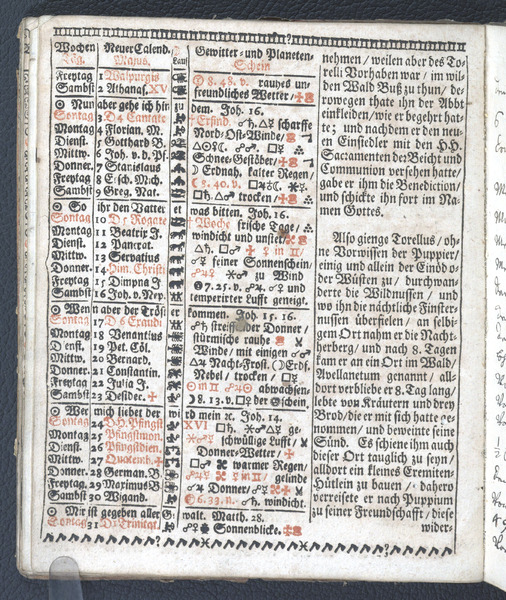 Wochen Neuer Calend. Lauf Gewitter- und Planeten-
Tag. Majus. Schein
Freytag 1 Walpurgis 8. 48. v. rauhes un-
Sambst 2 Athanas, XV freundliches Wetter /
Nun aber gehe ich hin zu dem. Joh. 16.
Sontag 3 D 4 Cantate Erfind. scharffe
Montag 4 Florian. M. Nord-Ost-Winde /
Dienst. 5 Gotthard B.
Mittw. 6 Joh. v. d. Pf.
Donner. 7 Stanislaus Schne-Gestöber /
Freytag 8 E. sch. Mich. Erdnah, kalter Regen /
Sambst 9 Greg. Naz. 3. 40. v.
trocken /
So ihr den Vatter et was bitten. Joh. 16.
Sontag 10 D 5 Rogate Woche frische Tage /
Montag 11 Beatrix J. windicht und unstet
Dienst. 12 Pancrat.
Mittw. 13 Servatius feiner Sonnenschein /
Donner. 14 Him. Christi zu Wind
Freytag 15 Dimpna J. 7. 25. v. und
Sambst 16 Joh. v. Nep. temperirter Lufft geneigt.
Wenn aber der Tröst er kommen. Joh. 15. 16.
Sontag 17 D 6 Exaudi streiff der Donner /
Montag 18 Venantius stürmische rauhe
Dienst. 19 Pet. Cöl. Winde / mit einigen
Mittw. 20 Bernard. Nacht-Frost. Erdf.
Donner. 21 Constantin. Nebel / trocken /
Freytag 22 Julia J. abwachsen-
Sambst 23 Desider. 8. 13. v. der Schein
Wer mich liebet der wird mein ec. Joh. 14.
Sontag 24 H. H. Pfingst XVI ge-
Montag 25 Pfingstmon. schwüllige Lufft /
Dienst. 26 Pfingstdien. Donner-Wetter /
Mittw. 27 Quatemb. warmer Regen /
Donner. 28 German. B. gelinde
Freytag 29 Maximus B. Donner /
Sambst 30 Wigand. 6. 33. n. windicht.
Mir ist gegeben aller Gewalt. Matth. 28.
Sontag 31 D. Trinitat. Sonnenblicke.
nehmen / weilen aber des To-
relli Vorhaben war / im wil-
den Wald Buß zu thun / de-
rowegen thate ihn der Abbt
einkleiden / wie er begehrt hat-
te; und nachdem er den neu-
en Einsidler mit den HH.
Sacramenten der Beicht und
Communion versehen hatte /
gab er ihm die Benediction /
und schickte ihn fort im Na-
men Gottes.
Also gienge Torellus / oh-
ne Vorwissen der Puppier /
einig und allein der Einöd o-
der Wüsten zu / durchwan-
derte die Wildnussen / und
wo ihn die nächtliche Finster-
nussen überfielen / an selbi-
gem Ort nahm er die Nacht-
herberg / und nach 8. Tagen
kam er an ein Ort im Wald /
Avellanetum genannt / all-
dort verbliebe er 8. Tag lang /
lebte von Kräutern und drey
Brod / die er mit sich hatte ge-
nommen / und beweinte seine
Sünd. Es schiene ihm auch
dieser Ort tauglich zu seyn /
alldort ein kleines Eremiten-
Hütlein zu bauen / dahero
verreisete er nach Puppium
zu seiner Freundschafft / diese
wider-